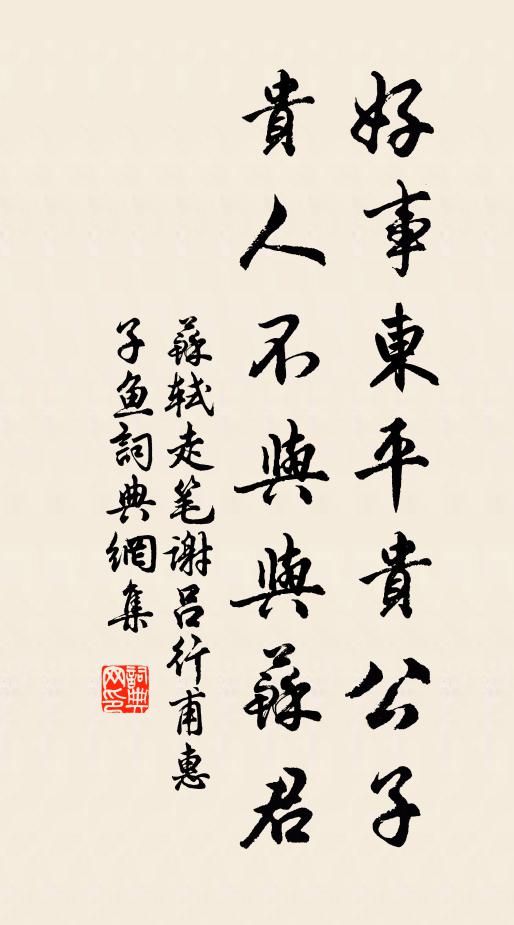 好事東平貴公子
貴人不與與蘇君
蘇軾走笔謝吕行甫惠
子魚詞典網集
詞典网印